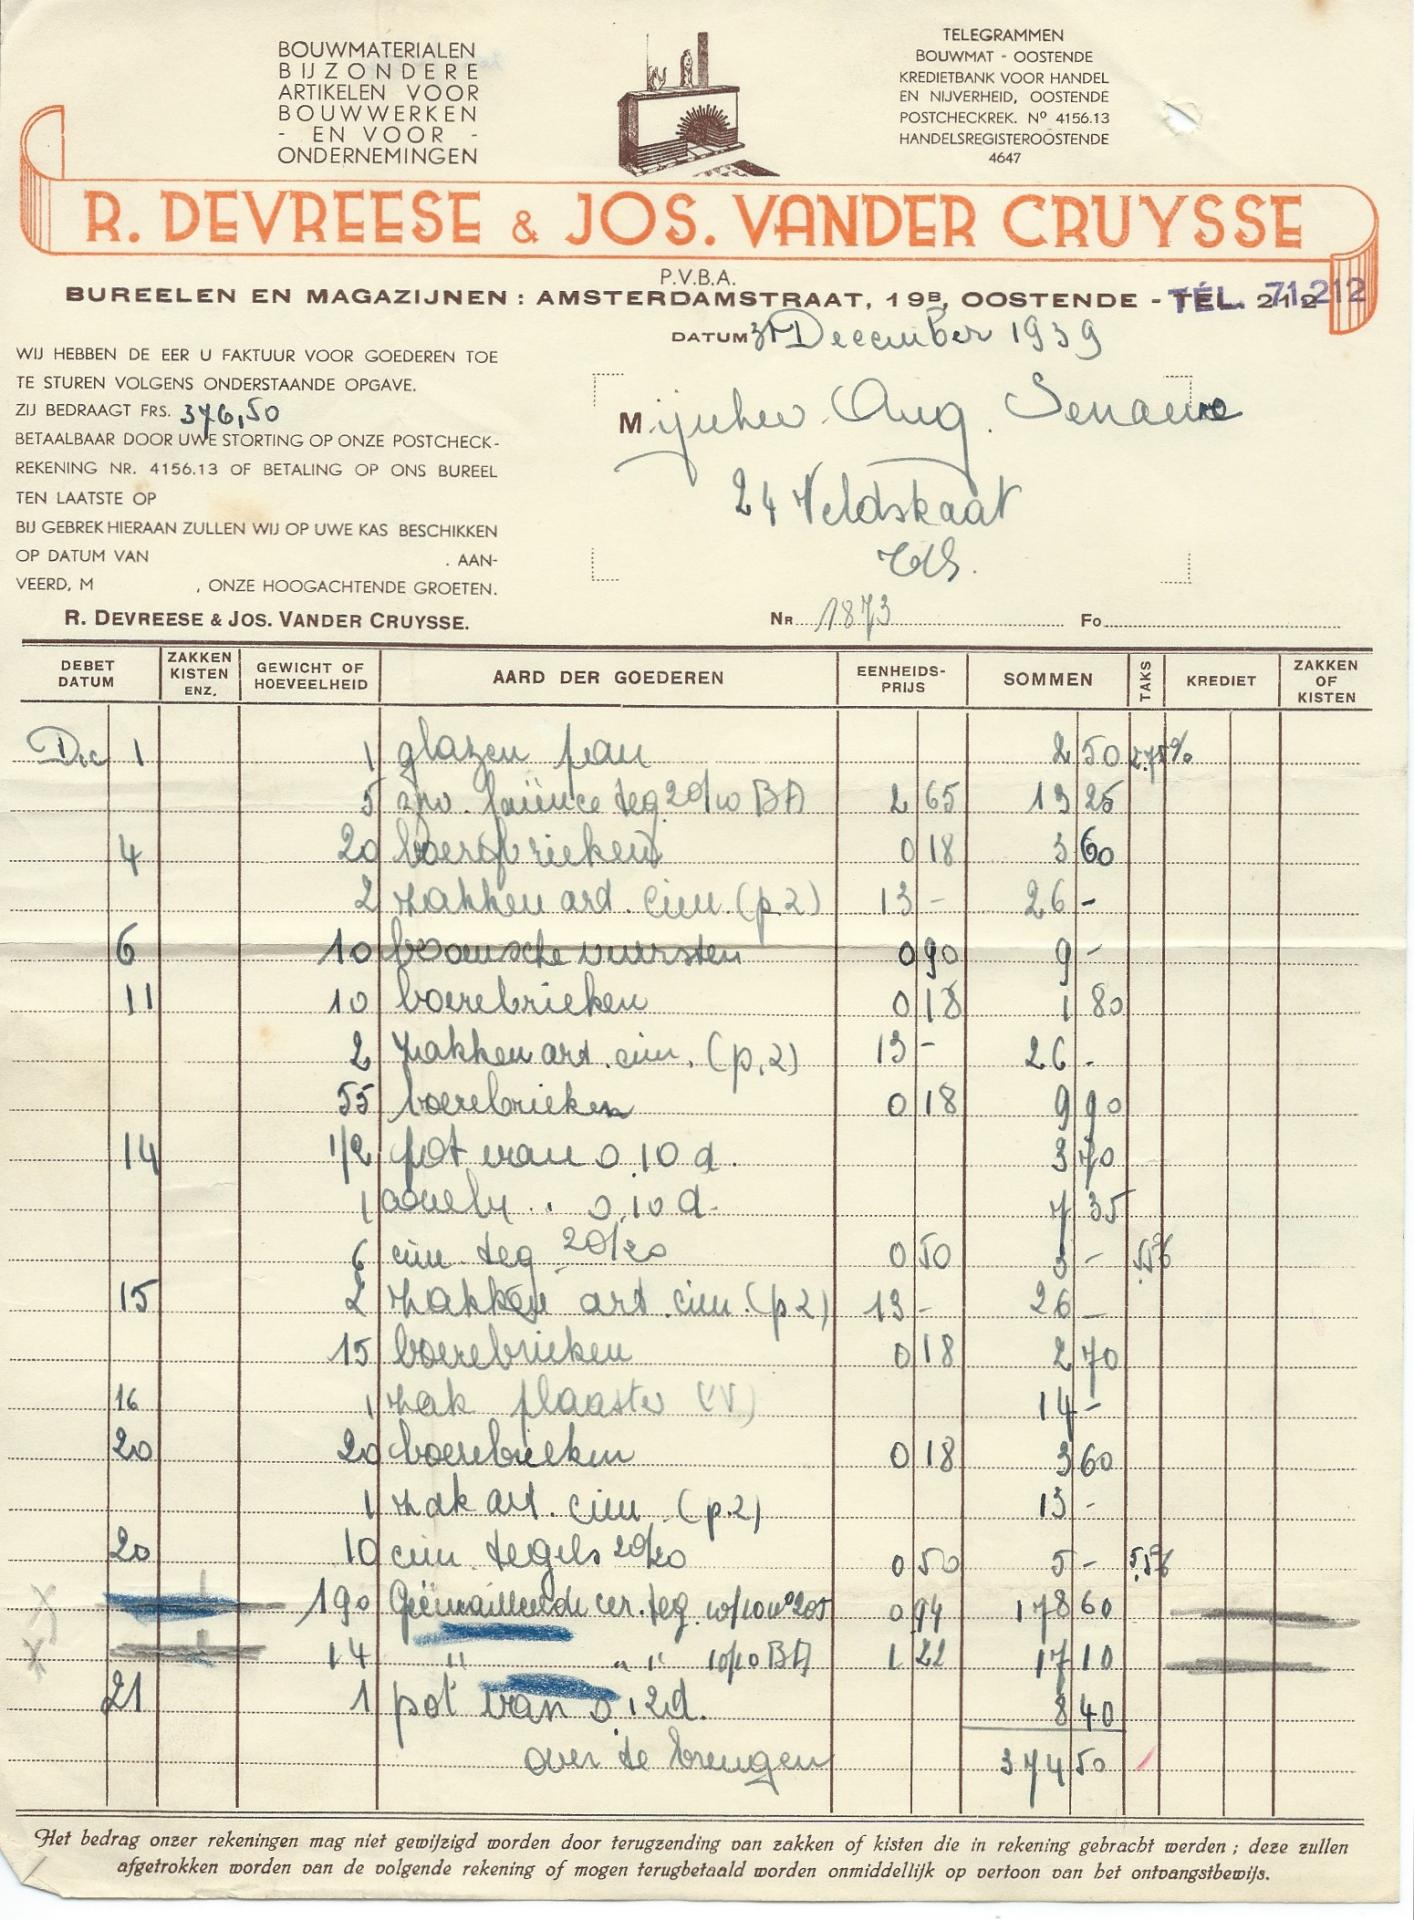 BOUWMATERIALEN
BIJZONDERE
ARTIKELEN VOOR
BOUWWERKEN
- EN VOOR -
ONDERNEMINGEN
TELEGRAMMEN
BOUWMAT - OOSTENDE
KREDIETBANK VOOR HANDEL
EN NIJVERHEID, OOSTENDE
POSTCHECKREK. Nº 4156.13
HANDELSREGISTER OOSTENDE
4647
R. DEVREESE & JOS. VANDER CRUYSSE
P.V.B.A.
BUREELEN EN MAGAZIJNEN : AMSTERDAMSTRAAT, 19B, OOSTENDE - TÉL. 71.212
DATUM 31 December 1939
WIJ HEBBEN DE EER U FAKTUUR VOOR GOEDEREN TOE
TE STUREN VOLGENS ONDERSTAANDE OPGAVE.
ZIJ BEDRAAGT FRS. 376,50
BETAALBAAR DOOR UWE STORTING OP ONZE POSTCHECK-
REKENING NR. 4156.13 OF BETALING OP ONS BUREEL
TEN LAATSTE OP
BIJ GEBREK HIERAAN ZULLEN WIJ OP UWE KAS BESCHIKKEN
OP DATUM VAN . AAN-
VEERD, M , ONZE HOOGACHTENDE GROETEN.
R. DEVREESE & JOS. VANDER CRUYSSE.
Mijnheer Aug.
24 Veldstraat
NR 1873 Fo
DEBET DATUM ZAKKEN KISTEN ENZ. GEWICHT OF HOEVEELHEID AARD DER GOEDEREN EENHEIDS-PRIJS SOMMEN TAKS KREDIET ZAKKEN OF KISTEN
Dec 1 1 glazen pan 2 50 2.75%
5 faïence teg 20/10 BA 2 65 13 25
4 20 0 18 3 60
2 zakken art. cim. (p 2) 13 - 26 -
6 10 boomsche vuursten 0 90 9 -
11 10 boerebrieken 0 18 1 80
2 zakken art. cim. (p.2) 13 - 26 -
55 boerebrieken 0 18 9 90
14 1/2 pot van 0.10 d. 3 70
1 0.10 d. 7 35
6 cim. teg 20/20 0 50 3 - 5.5%
15 2 zakken art. cim. (p 2) 13 - 26 -
15 boerebrieken 0 18 2 70
16 1 zak plaaster (VV) 14 -
20 20 boerebrieken 0 18 3 60
1 zak art. cim (p.2) 13 -
20 10 cim. tegels 20/20 0 50 5 - 5.5%
190 Geëmailleerde cer. teg. 10/10 nº 205 0 94 178 60
14 " " " 10/10 BA 1 22 17 10
21 1 pot van 0.12d. 8 40
over te brengen 374 50
Het bedrag onzer rekeningen mag niet gewijzigd worden door terugzending van zakken of kisten die in rekening gebracht werden ; deze zullen
afgetrokken worden van de volgende rekening of mogen terugbetaald worden onmiddellijk op vertoon van het ontvangstbewijs.